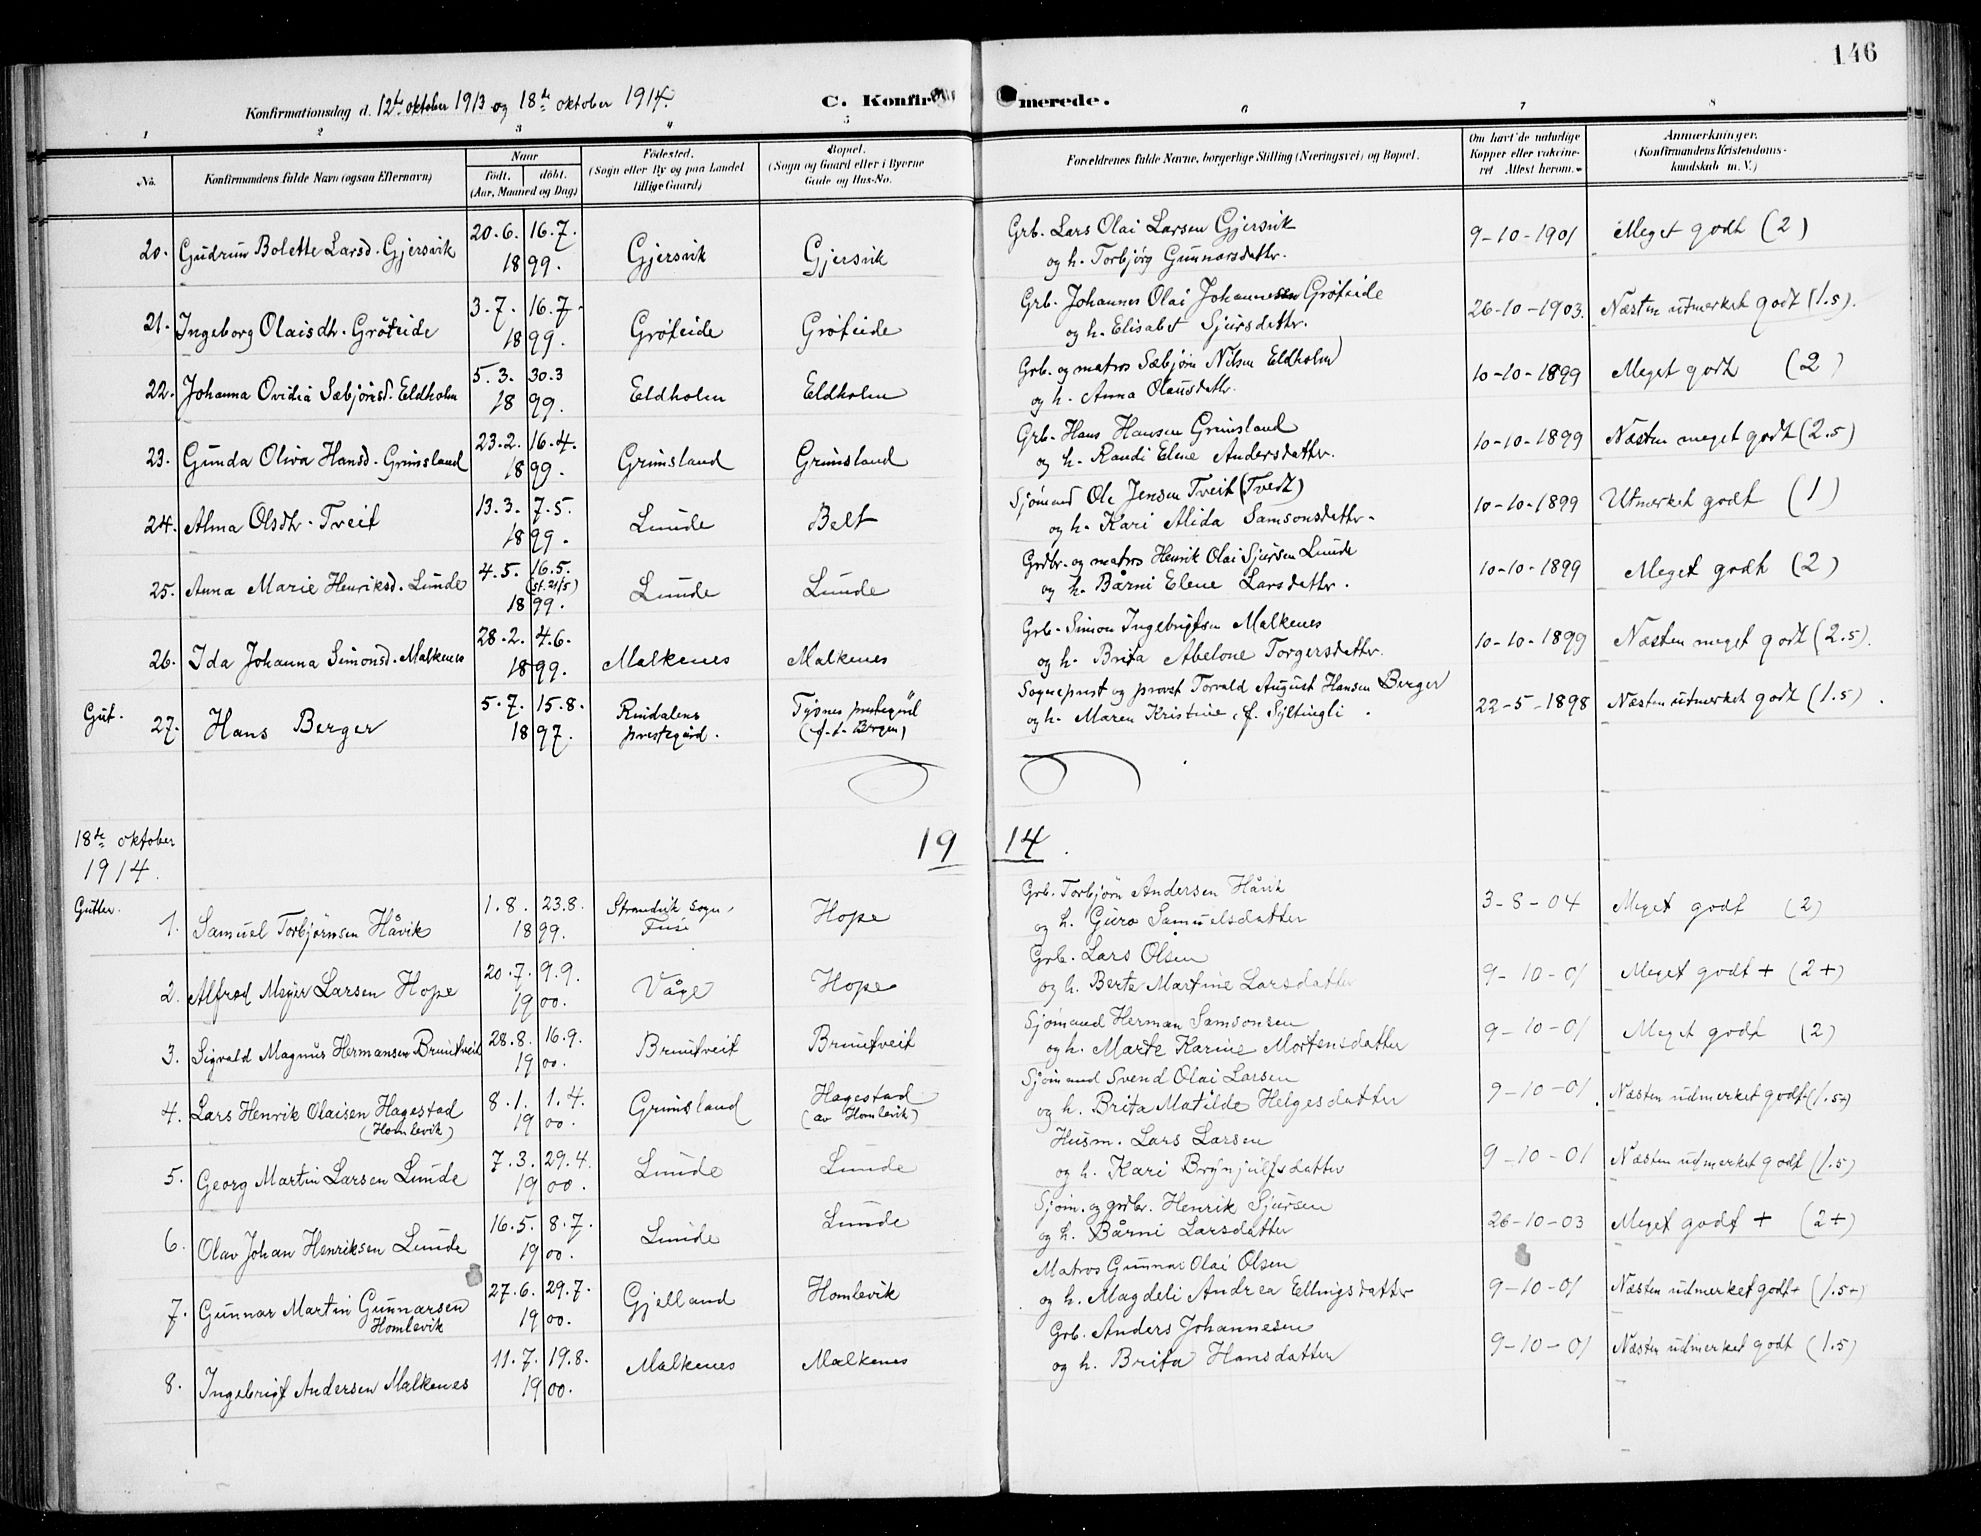 146
Konfirmationsdag d. 12te oktober 1913 og 18de oktober 1914.
C. Konfirmerede.
1 2 3 4 5 6 7 8
No. Konfirmandens fulde Navn (ogsaa Efternavn) Naar født. døbt. (Aar, Maaned og Dag) Fødested. (Sogn eller By og paa Landet tillige Gaard) Bopæl. (Sogn og Gaard eller i Byerne Gade og Hus-No. Forældrenes fulde Navne, borgerlige Stilling (Næringsvei) og Bopæl. Om havt de naturlige Kopper eller vakcineret Attest herom. Anmærkninger. (Konfirmandens Kristendomskundskab m. V.)
20. Gudrun Bolette Larsd. Gjersvik 20.6. 16.7. 1899. Gjersvik Gjersvik Grb. Lars Olai Larsen Gjersvik og h. Torbjörg Gunnarsdatter. 9-10-1901 Meget godt (2)
21. Ingeborg Olaisdtr. Gröteide 3.7. 16.7. 1899. Gröteide Gröteide Grb. Johannes Olai Johannessen Gröteide og h. Elisabet Sjursdatter. 26-10-1903. Næsten utmerket godt (1.5).
22. Johanna Ovidia Sæbjörnsd. Eldholm 5.3. 30.3 1899. Eldholm Eldholm Grb. og matros Sæbjörn Nilsen Eldholm og h. Anna Olausdattr. 10-10-1899 Meget godt (2)
23. Gunda Oliva Hansd. Grimsland 23.2. 16.4. 1899. Grimsland Grimsland Grb. Hans Hansen Grimsland og h. Randi Elene Andersdatter. 10-10-1899 Næsten meget godt (2.5)
24. Alma Olsdtr. Tveit 13.3. 7.5. 1899. Lunde Belt Sjömand Ole Jensen Tveit (Tvedt) og h. Kari Alida Samsonsdatter. 10-10-1899 Utmerket godt (1)
25. Anna Marie Henriksd. Lunde 4.5. 16.5. (st. 21/5) 1899. Lunde Lunde Grdbr. og matros Henrik Olai Sjursen Lunde og h. Bårni Elene Larsdatter. 10-10-1899 Meget godt (2)
26. Ida Johanna Simonsd. Malkenes 28.2. 4.6. 1899. Malkenes Malkenes Grb. Simon Ingebrigtsen Malkenes og h. Brita Abelone Torgersdatter. 10-10-1899 Næsten meget godt (2.5).
Gut. 27. Hans Berger 5.7. 15.8. 1897. Rindalens prestegård. Tysnes prestegård (f.t. Bergen) Sogneprest og provst Torvald August Hansen Berger og h. Maren Kristine, f. Syltingli. 22-5-1898 Næsten utmerket godt (1.5).
18de oktober 1914.
1914.
Gutter.
1. Samuel Torbjörnsen Håvik 1.8. 23.8. 1899. Strandvik sogn, Fuse Hope Grb. Torbjörn Andersen Håvik og h. Guro Samuelsdatter 3-8-04 Meget godt (2)
2. Alfred Meyer Larsen Hope 20.7. 9.9. 1900. Våge Hope Grb. Lars Olsen og h. Berte Martine Larsdatter 9-10-01 Meget godt + (2+)
3. Sigvald Magnus Hermansen Bruntveit 28.8. 16.9. 1900. Bruntveit Bruntveit Sjömand Herman Samsonsen og h. Marte Karine Mortensdatter 9-10-01 Meget godt (2)
4. Lars Henrik Olaisen Hagestad (Homlevik) 8.1. 1.4. 1900. Grimsland Hagestad (av Homlevik) Sjömand Svend Olai Larsen og h. Brita Matilde Helgesdatter 9-10-01 Næsten udmerket godt+ (1.5+)
5. Georg Martin Larsen Lunde 7.3. 29.4. 1900. Lunde Lunde Husm. Lars Larsen og h. Kari Brynjulfsdatter 9-10-01 Næsten udmerket godt (1.5)
6. Olav Johan Henriksen Lunde 16.5. 8.7. 1900. Lunde Lunde Sjöm. og grdbr. Henrik Sjursen og h. Bårni Larsdatter 26-10-03 Meget godt + (2+)
7. Gunnar Martin Gunnarsen Homlevik 27.6. 29.7. 1900. Gjelland Homlevik Matros Gunnar Olai Olsen og h. Magdeli Andrea Ellingsdatter 9-10-01 Næsten udmerket godt+ (1.5+)
8. Ingebrigt Andersen Malkenes 11.7. 19.8. 1900. Malkenes Malkenes Grb. Anders Johannesen og h. Brita Hansdatter 9-10-01 Næsten udmerket godt (1.5)